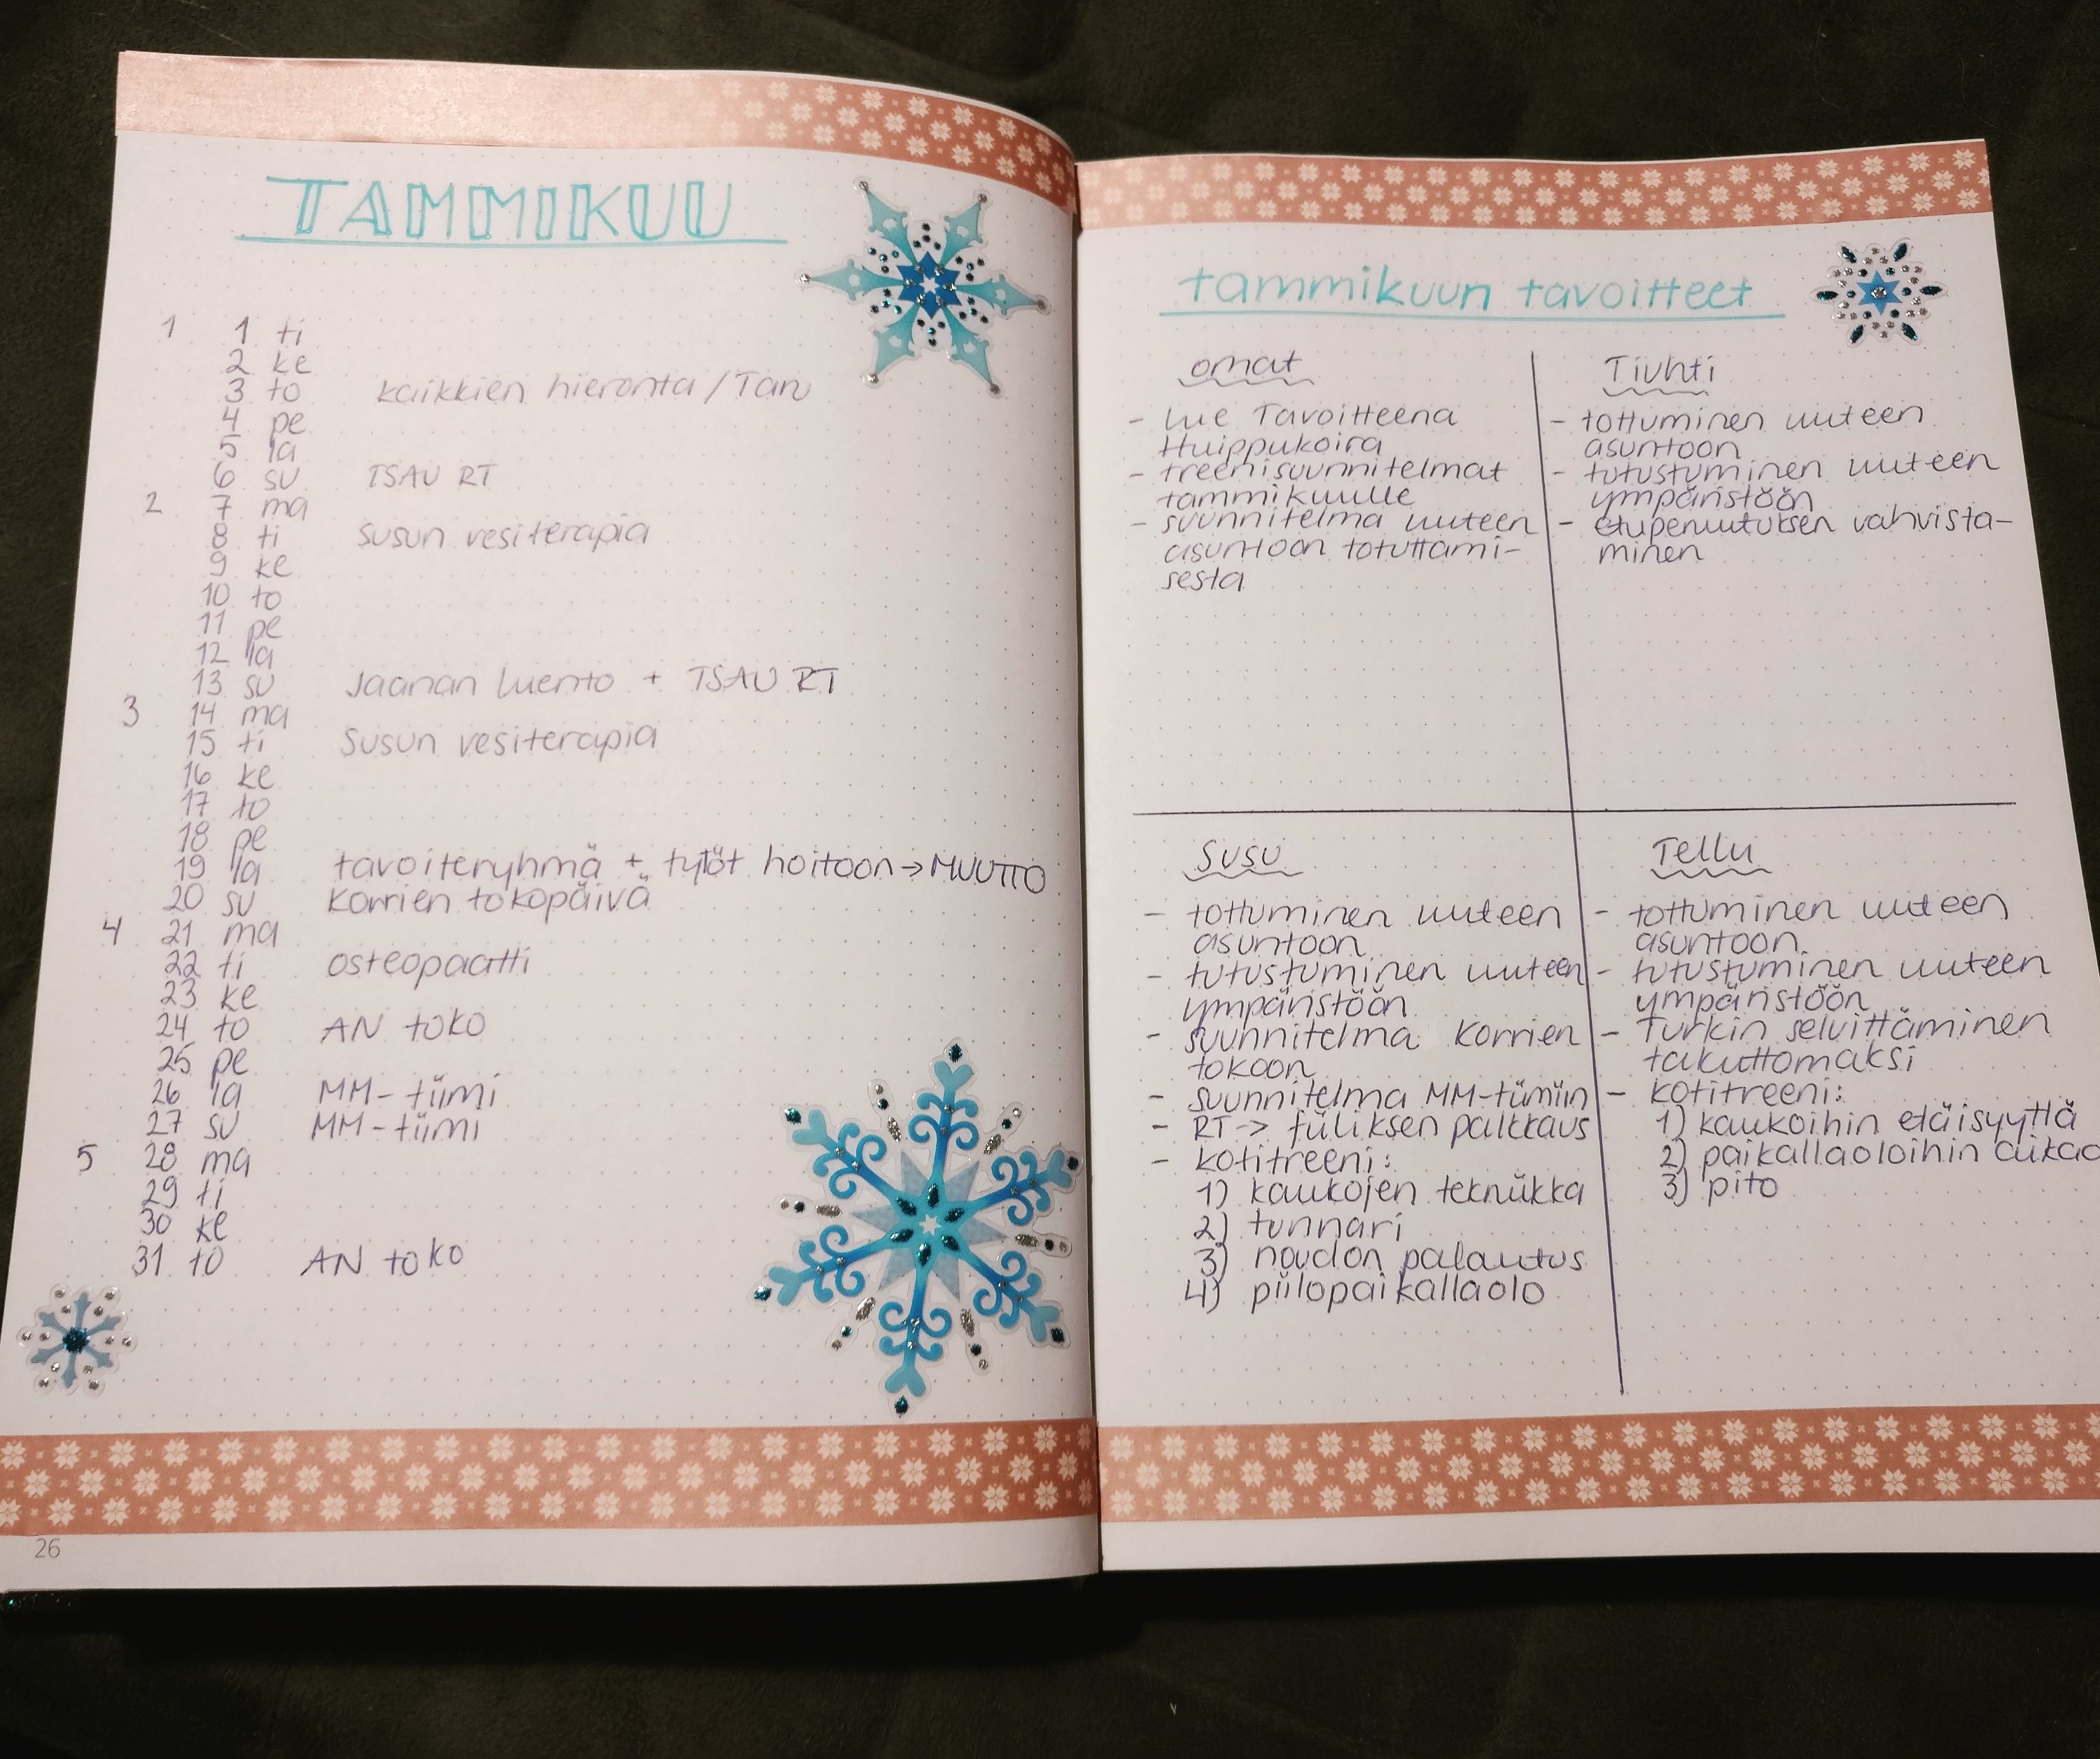 TAMMIKUU
1 1 ti
2 ke
3 to kaikkien hieronta / Taru
4 pe
5 la
6 su TSAU RT
2 7 ma
8 ti Susun vesiterapia
9 ke
10 to
11 pe
12 la
13 su Jaanan luento + TSAU RT
3 14 ma
15 ti Susun vesiterapia
16 ke
17 to
18 pe
19 la tavoiteryhmä + tytöt hoitoon → MUUTTO
20 su Korrien tokopäivä
4 21 ma
22 ti osteopaatti
23 ke
24 to AN toko
25 pe
26 la MM-tiimi
27 su MM-tiimi
5 28 ma
29 ti
30 ke
31 to AN toko
26
tammikuun tavoitteet
omat
- lue Tavoitteena
Huippukoira
- treenisuunnitelmat
tammikuulle
- suunnitelma uuteen
asuntoon totuttami-
sesta
Tiuhti
- tottuminen uuteen
asuntoon
- tutustuminen uuteen
ympäristöön
- etuperuutuksen vahvista-
minen
Susu
- tottuminen uuteen
asuntoon
- tutustuminen uuteen
ympäristöön
- suunnitelma Korrien
tokoon
- suunnitelma MM-tiimiin
- RT -> fiiliksen palkkaus
- kotitreeni:
1) kaukojen tekniikka
2) tunnari
3) noudon palautus
4) piilopaikallaolo
Tellu
- tottuminen uuteen
asuntoon
- tutustuminen uuteen
ympäristöön
- Turkin selvittäminen
takuttomaksi
- kotitreeni:
1) kaukoihin etäisyyttä
2) paikallaoloihin aikaa
3) pito